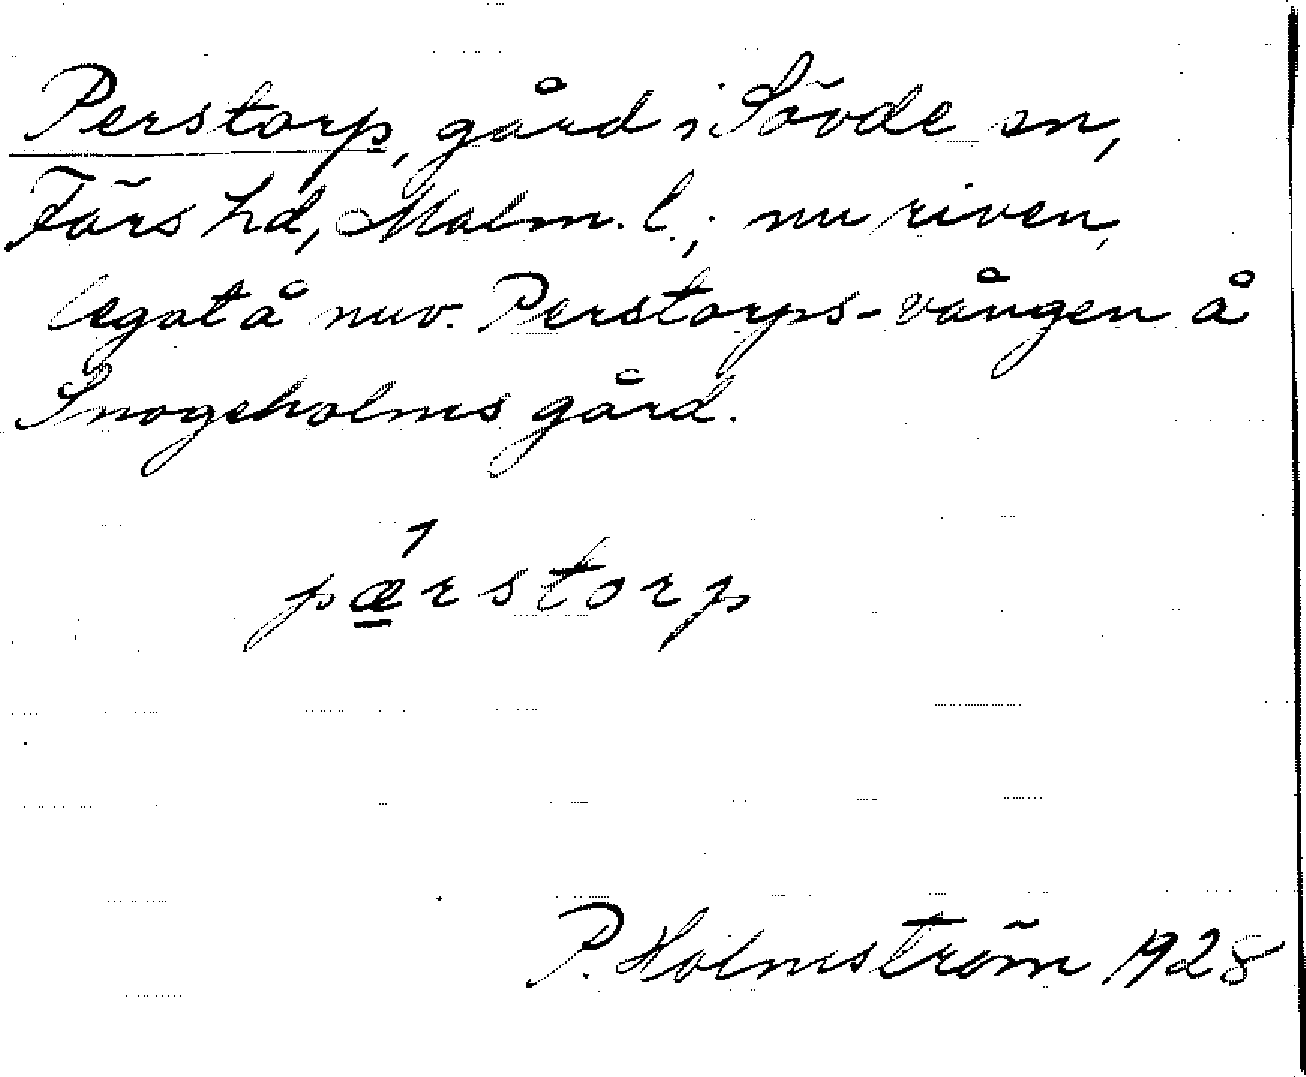 Perstorp, gård i Sövde sn,
Färs hd, Malm. l.; nu riven,
legat å nuv. Perstorps-vången å
Snogeholms gård.
pæ´rstorp
P. Holmström 1928